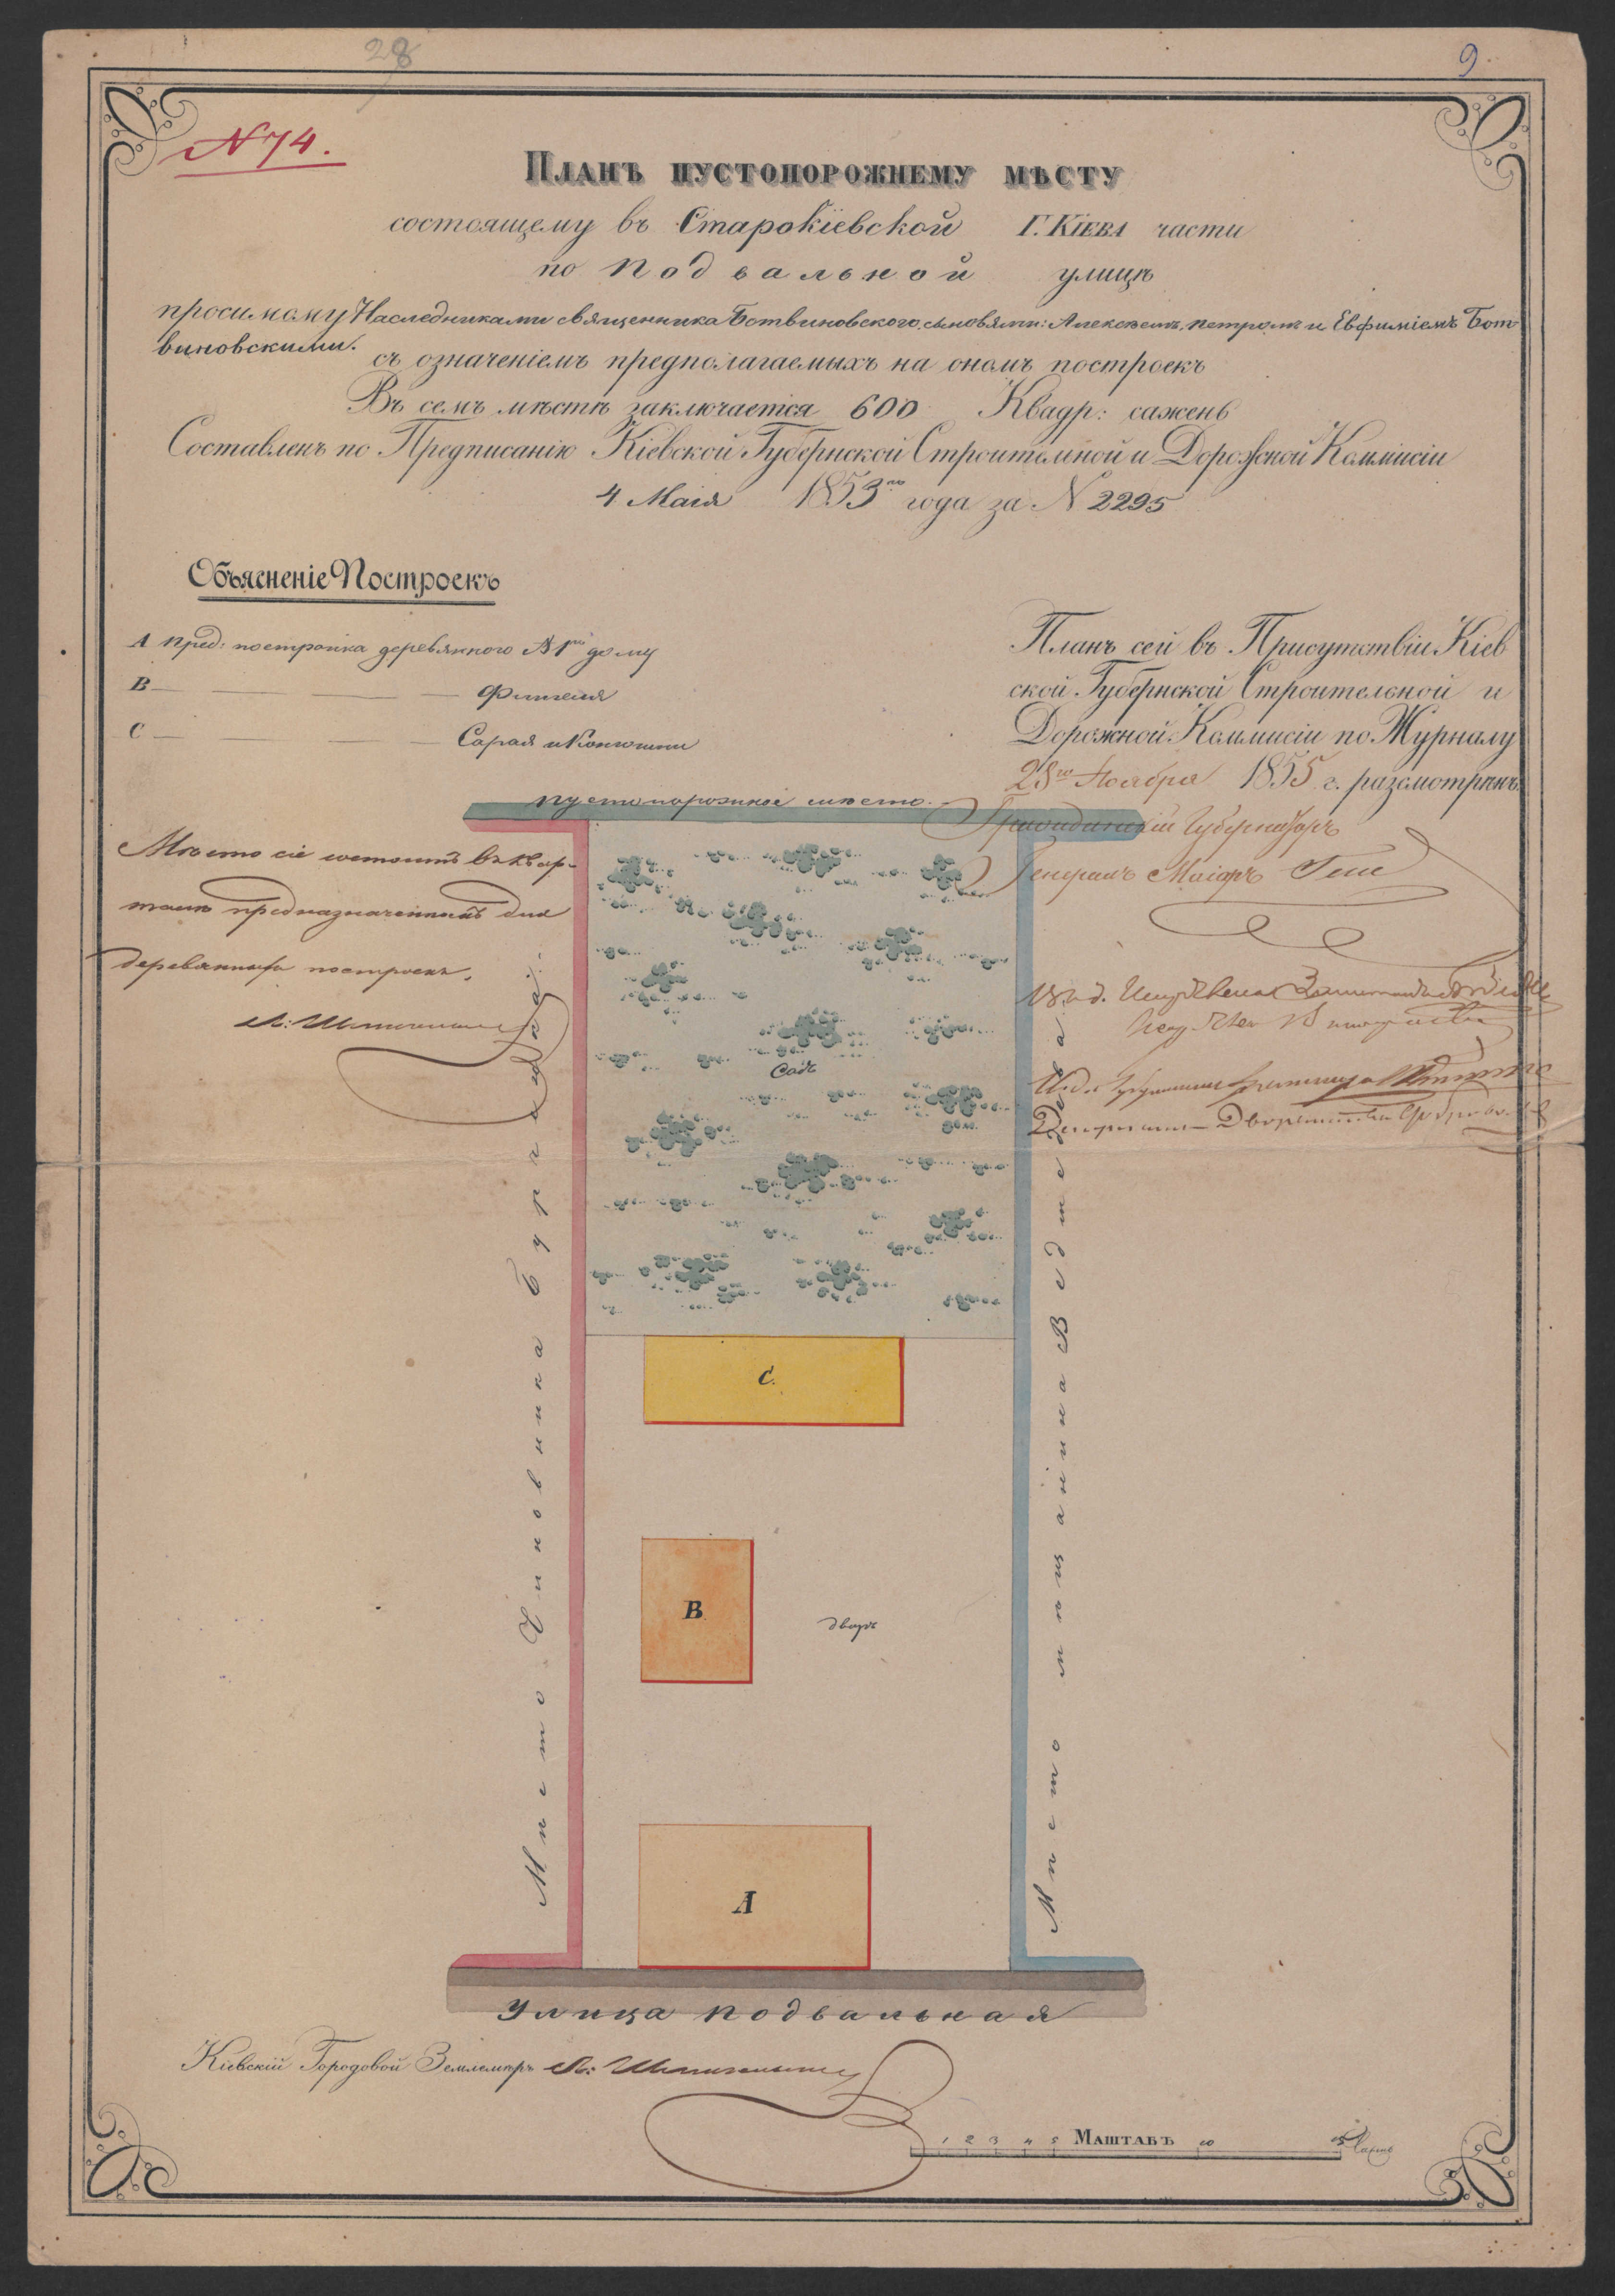 28
9.
N 74.
Планъ пустопорожнему мѣсту
состоящему въ Старокіевской Г. Кіева части
по Подвальной улицѣ
просимому Наследниками священника Ботвиновского, сыновями: Алексѣемъ, Петромъ и Евфиміемъ Бот
виновскими.
съ означеніемъ предполагаемыхъ на ономъ построекъ
Въ семъ мѣстѣ заключается 600 Квадр: сажень
Составленъ по Предписанію Кіевской Губернской Строительной и Дорожной Коммисіи
4 Маія 1853го года за N 2295
Объясненіе Построекъ
А Пред: постройка деревянного N 1го дому
В — Флигеля
С — Сарая и Конюшни
Планъ сей въ Присутствіи Кіев
ской Губернской Строительной и
Дорожной Коммисіи по Журналу
28го Ноября 1855 г. разсмотрѣнъ
Гражданскій Губернаторъ
Генералъ Маіоръ Гессе
пустопорожное мѣсто.
Мѣсто сіе состоитъ въ квар-
талѣ предназначенномъ для
деревянныхъ построекъ.
Садъ
Мѣсто Чиновника
Мѣсто мѣщанина
С.
В
дворъ
А
Улица Подвальная
Кіевскій Городовой Землемѣръ
1 2 3 4 5 Маштабъ 10 15 Сажень